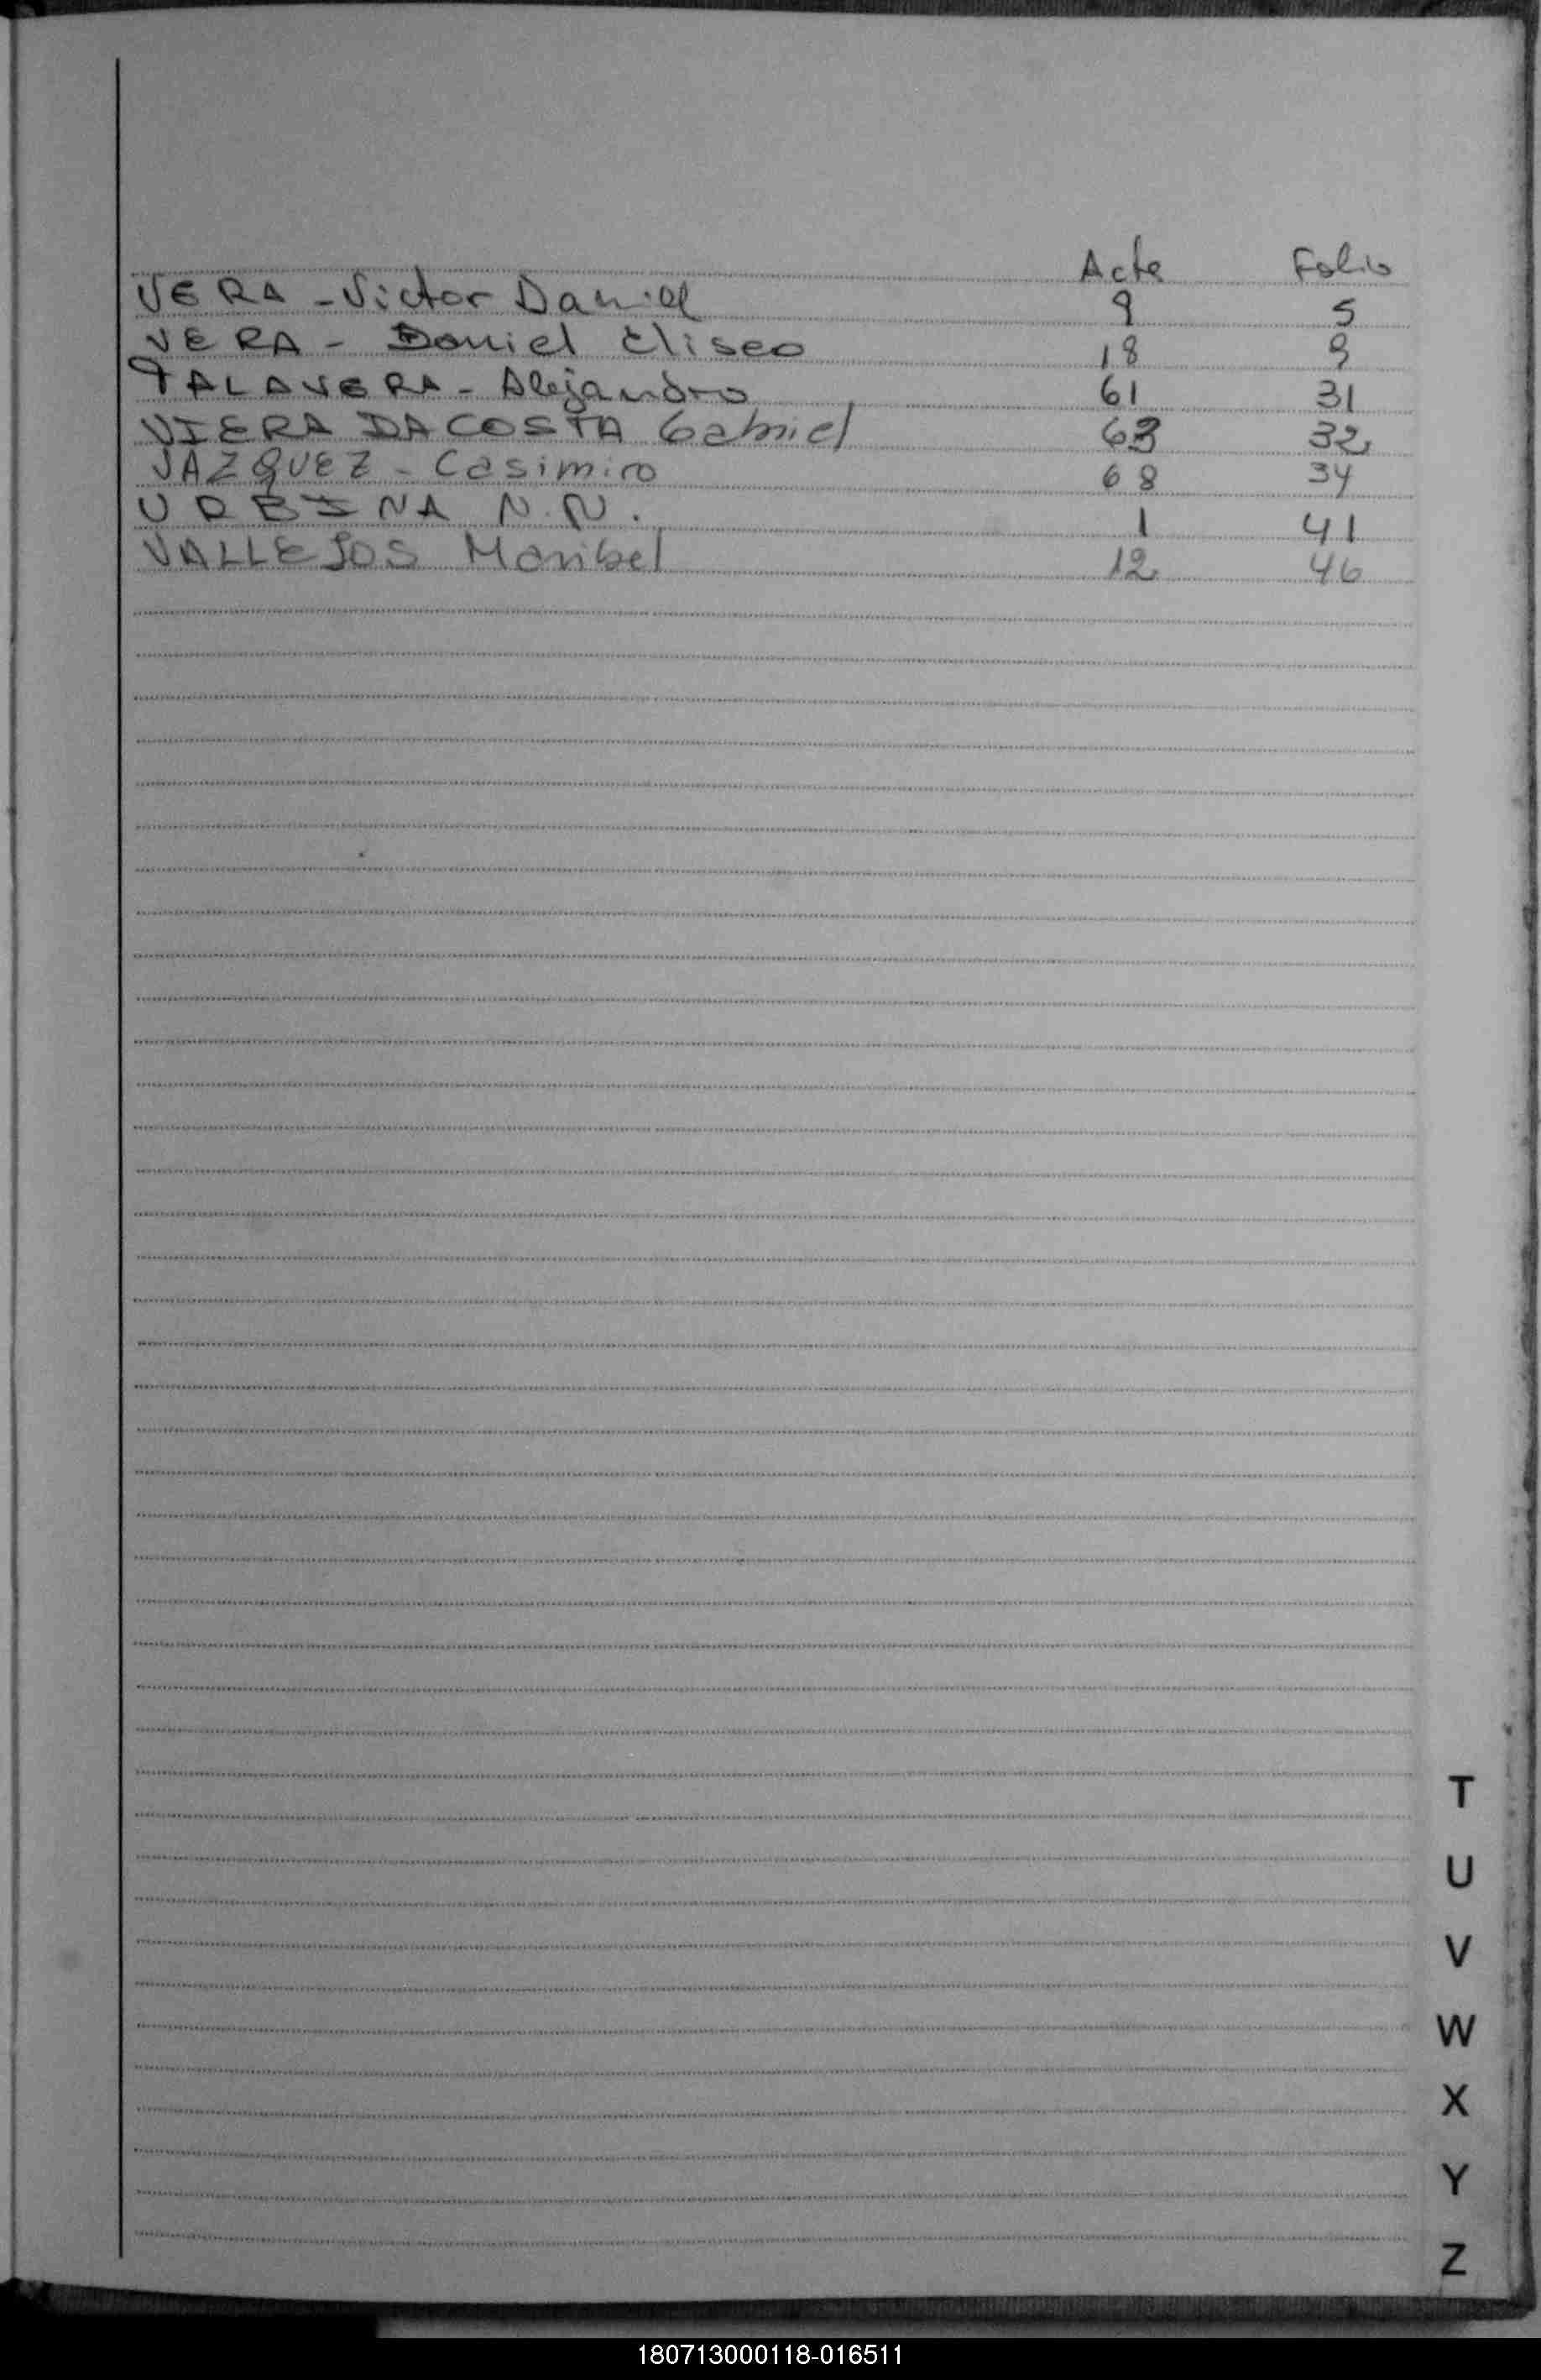 Acta Folio
VERA - Victor Daniel 9 5
VERA - Daniel Eliseo 18 9
TALAVERA - Alejandro 61 31
VIERA DACOSTA Gabriel 63 32
VAZQUEZ - Casimiro 68 34
URBINA N.N. 1 41
VALLEJOS Maribel 12 46
T
U
V
W
X
Y
Z
180713000118-016511